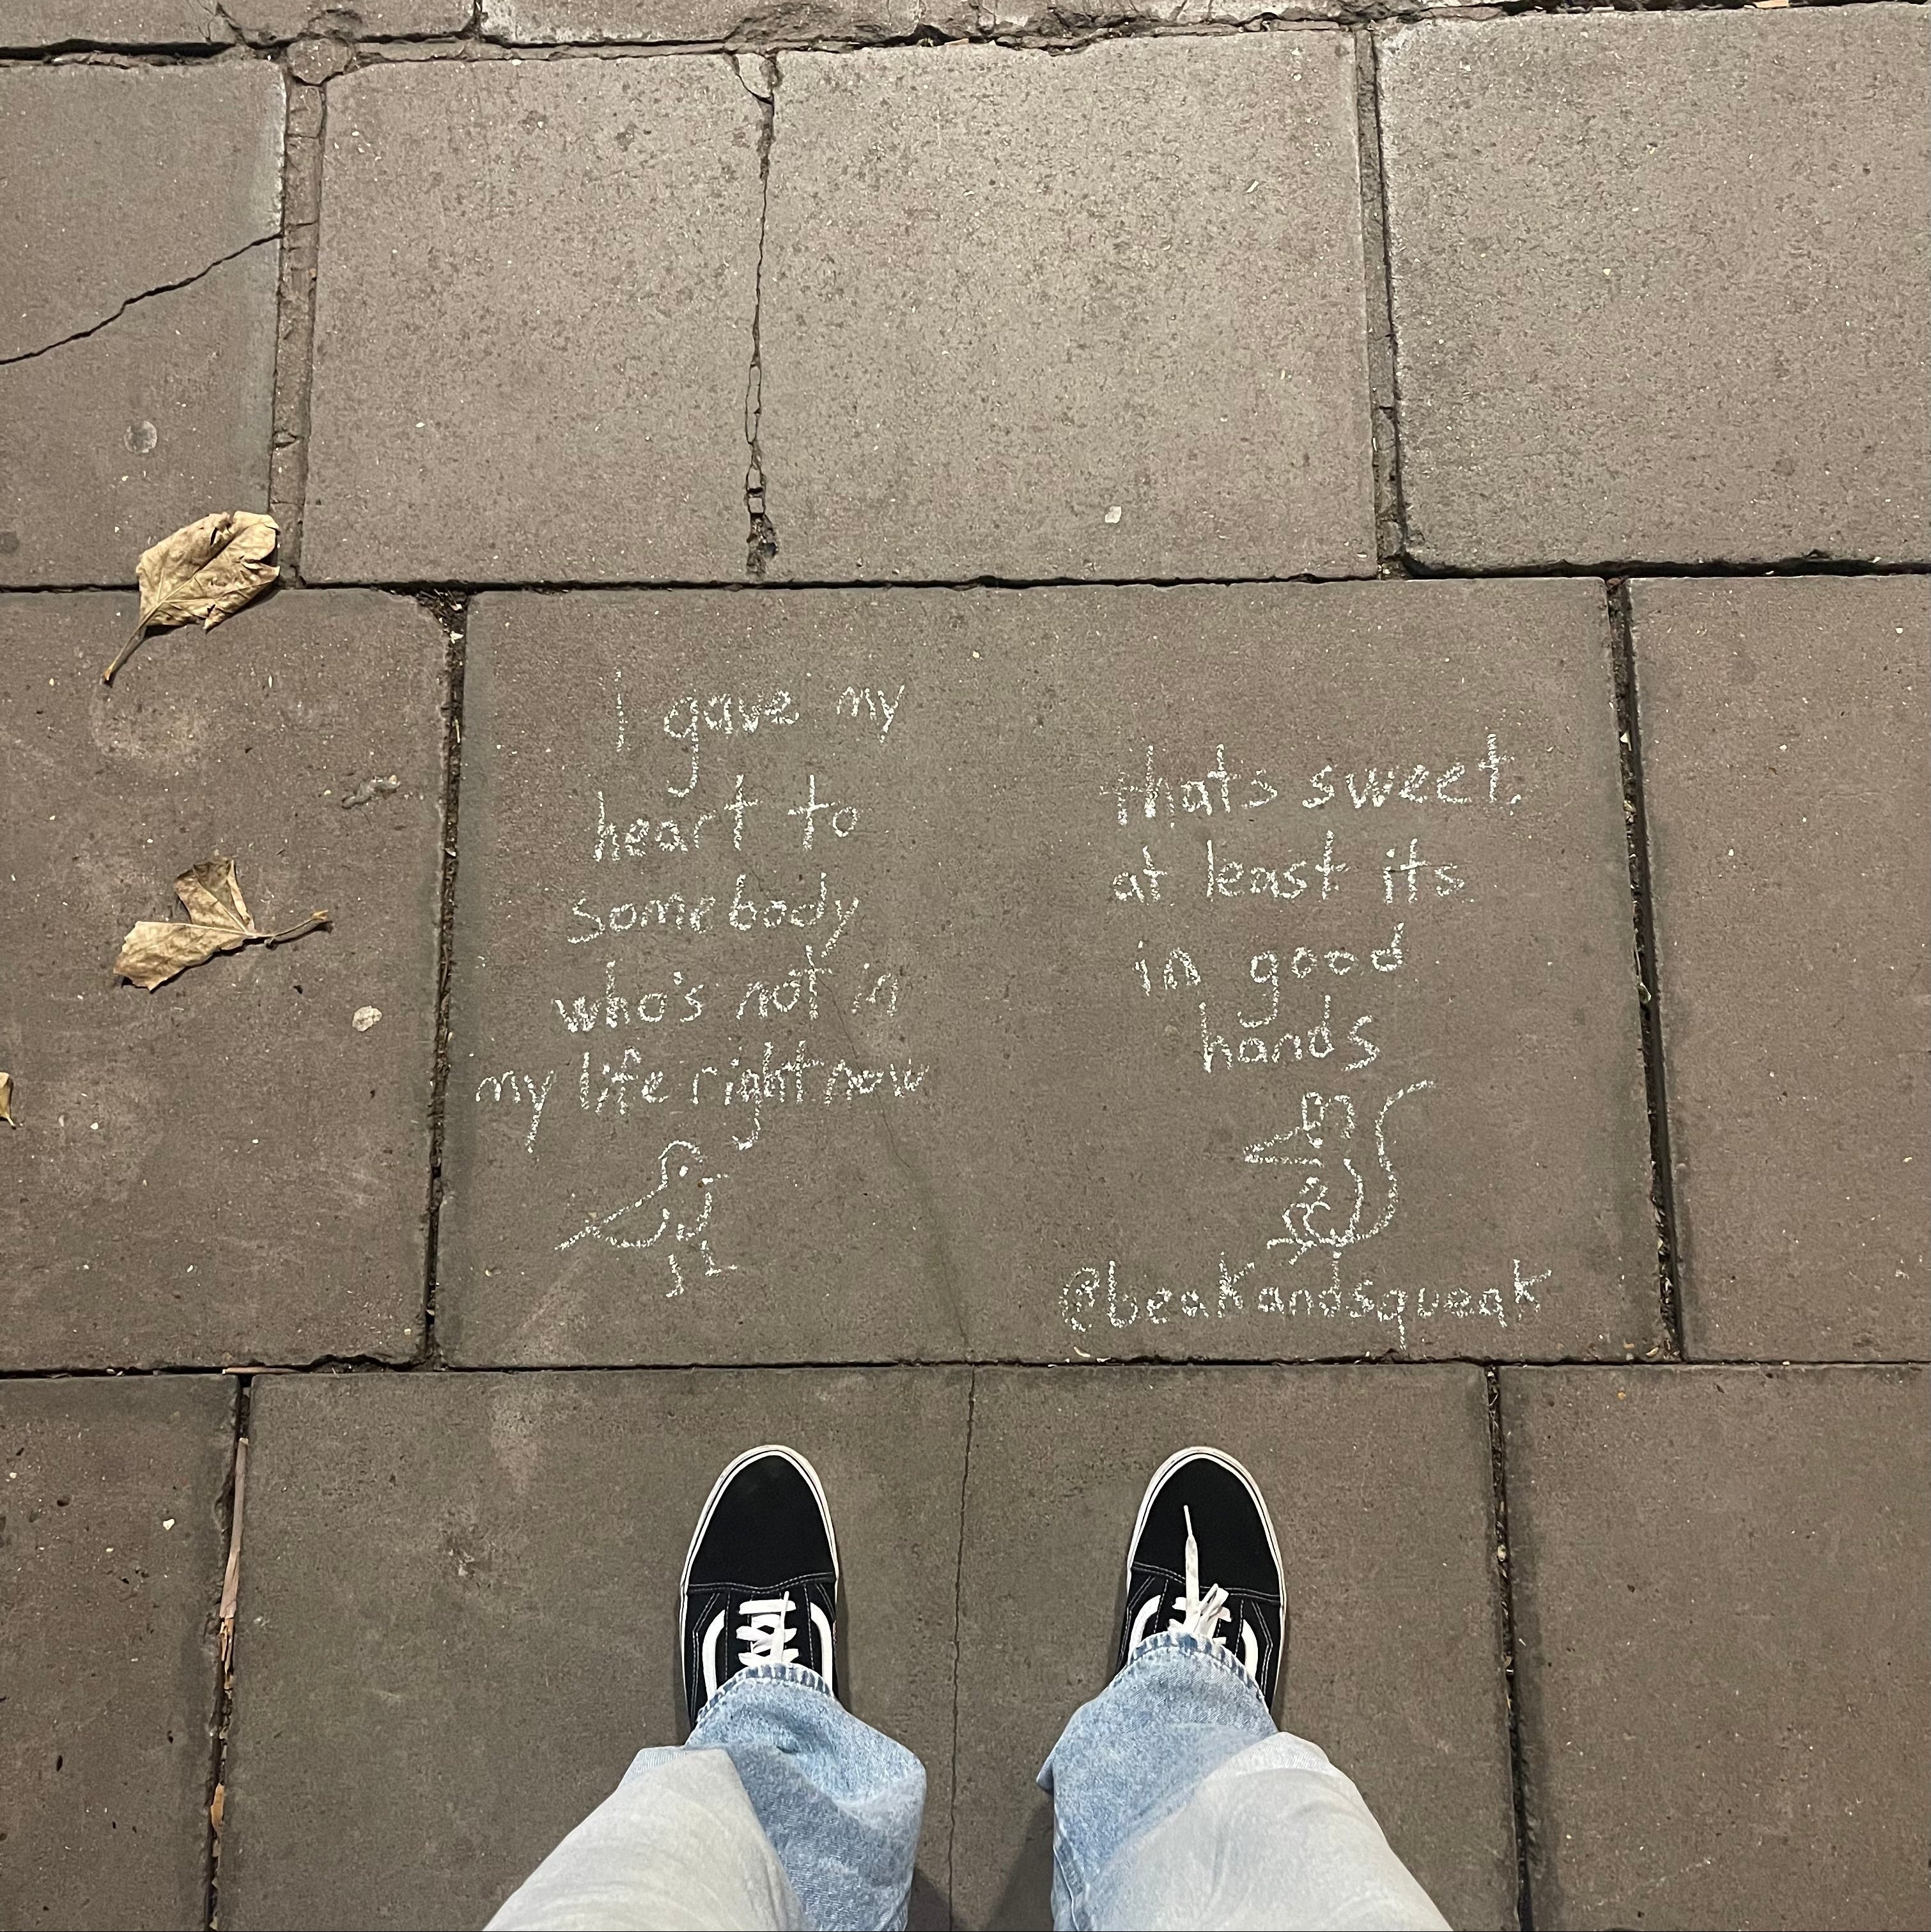 I gave my
heart to
somebody
who's not in
my life right now
that's sweet.
at least its
in good
hands
@beakandsqueak